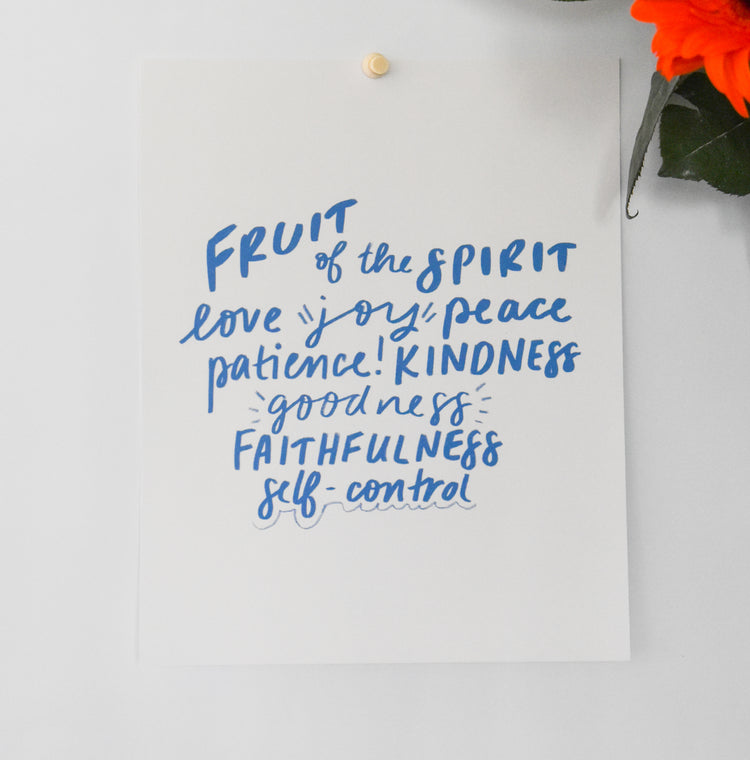 FRUIT
of the SPIRIT
love joy peace
patience! KINDNESS
goodness
FAITHFULNESS
self-control